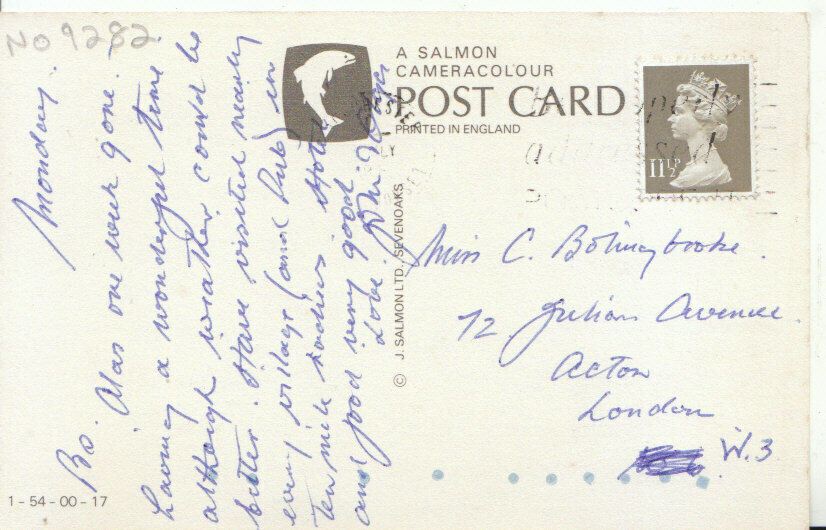 No 9282
Monday.
Bo. Alas one week gone.
Having a wonderful time
although weather could be
better. Have visited nearly
every village (and pub) in
ten mile radius. Hotel
and food very good
Love.
A SALMON
CAMERACOLOUR
POST CARD
PRINTED IN ENGLAND
© J. SALMON LTD., SEVENOAKS
11½P
Miss C. Bolingbroke.
72 Julian Avenue.
Acton
London
W.3
1-54-00-17